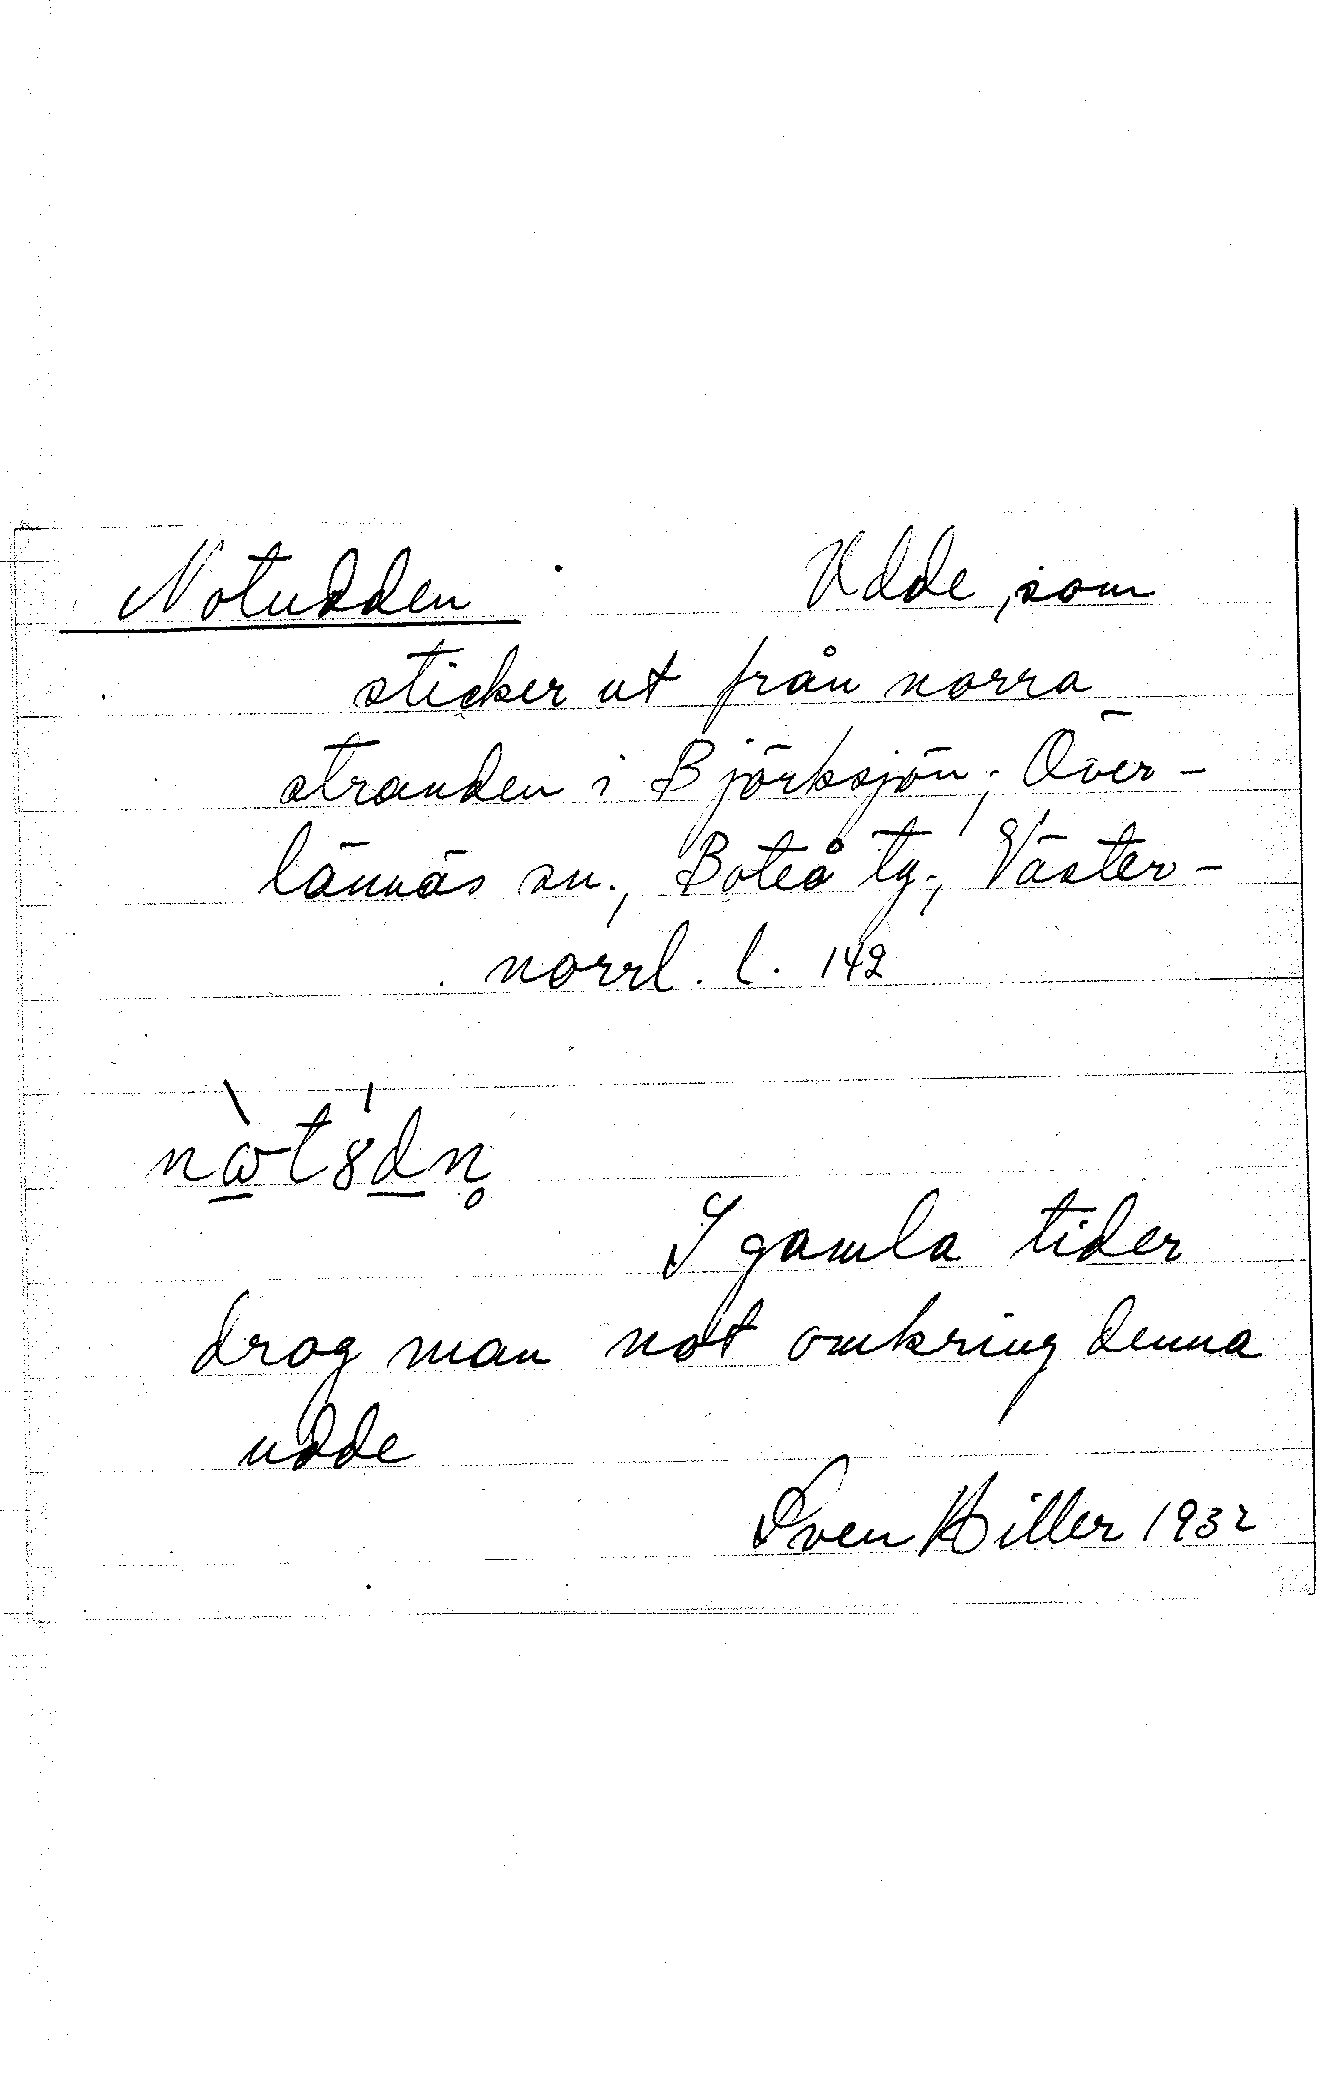 Notudden Udde, som
sticker ut från norra
stranden i Björksjön, Över-
lännäs sn., Boteå tg., Väster-
norrl. l. 142
I gamla tider
drog man not omkring denna
udde
Sven Hiller 1932